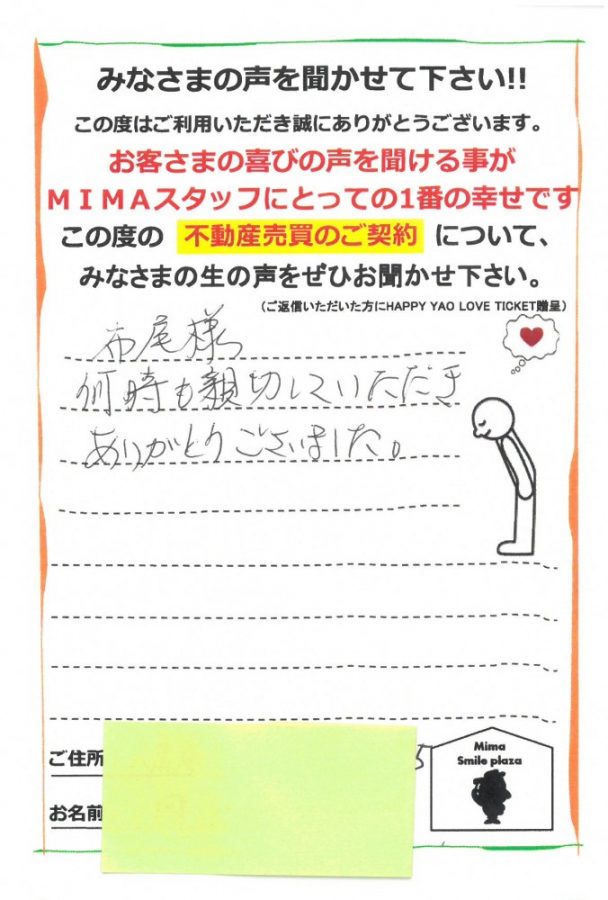 みなさまの声を聞かせて下さい!!
この度はご利用いただき誠にありがとうございます。
お客さまの喜びの声を聞ける事が
ＭＩＭＡスタッフにとっての1番の幸せです
この度の 不動産売買のご契約 について、
みなさまの生の声をぜひお聞かせ下さい。
（ご返信いただいた方にHAPPY YAO LOVE TICKET贈呈）
布尾様
何時も親切していただき
ありがとうございました。
ご住所
5
お名前
Mima
Smile plaza